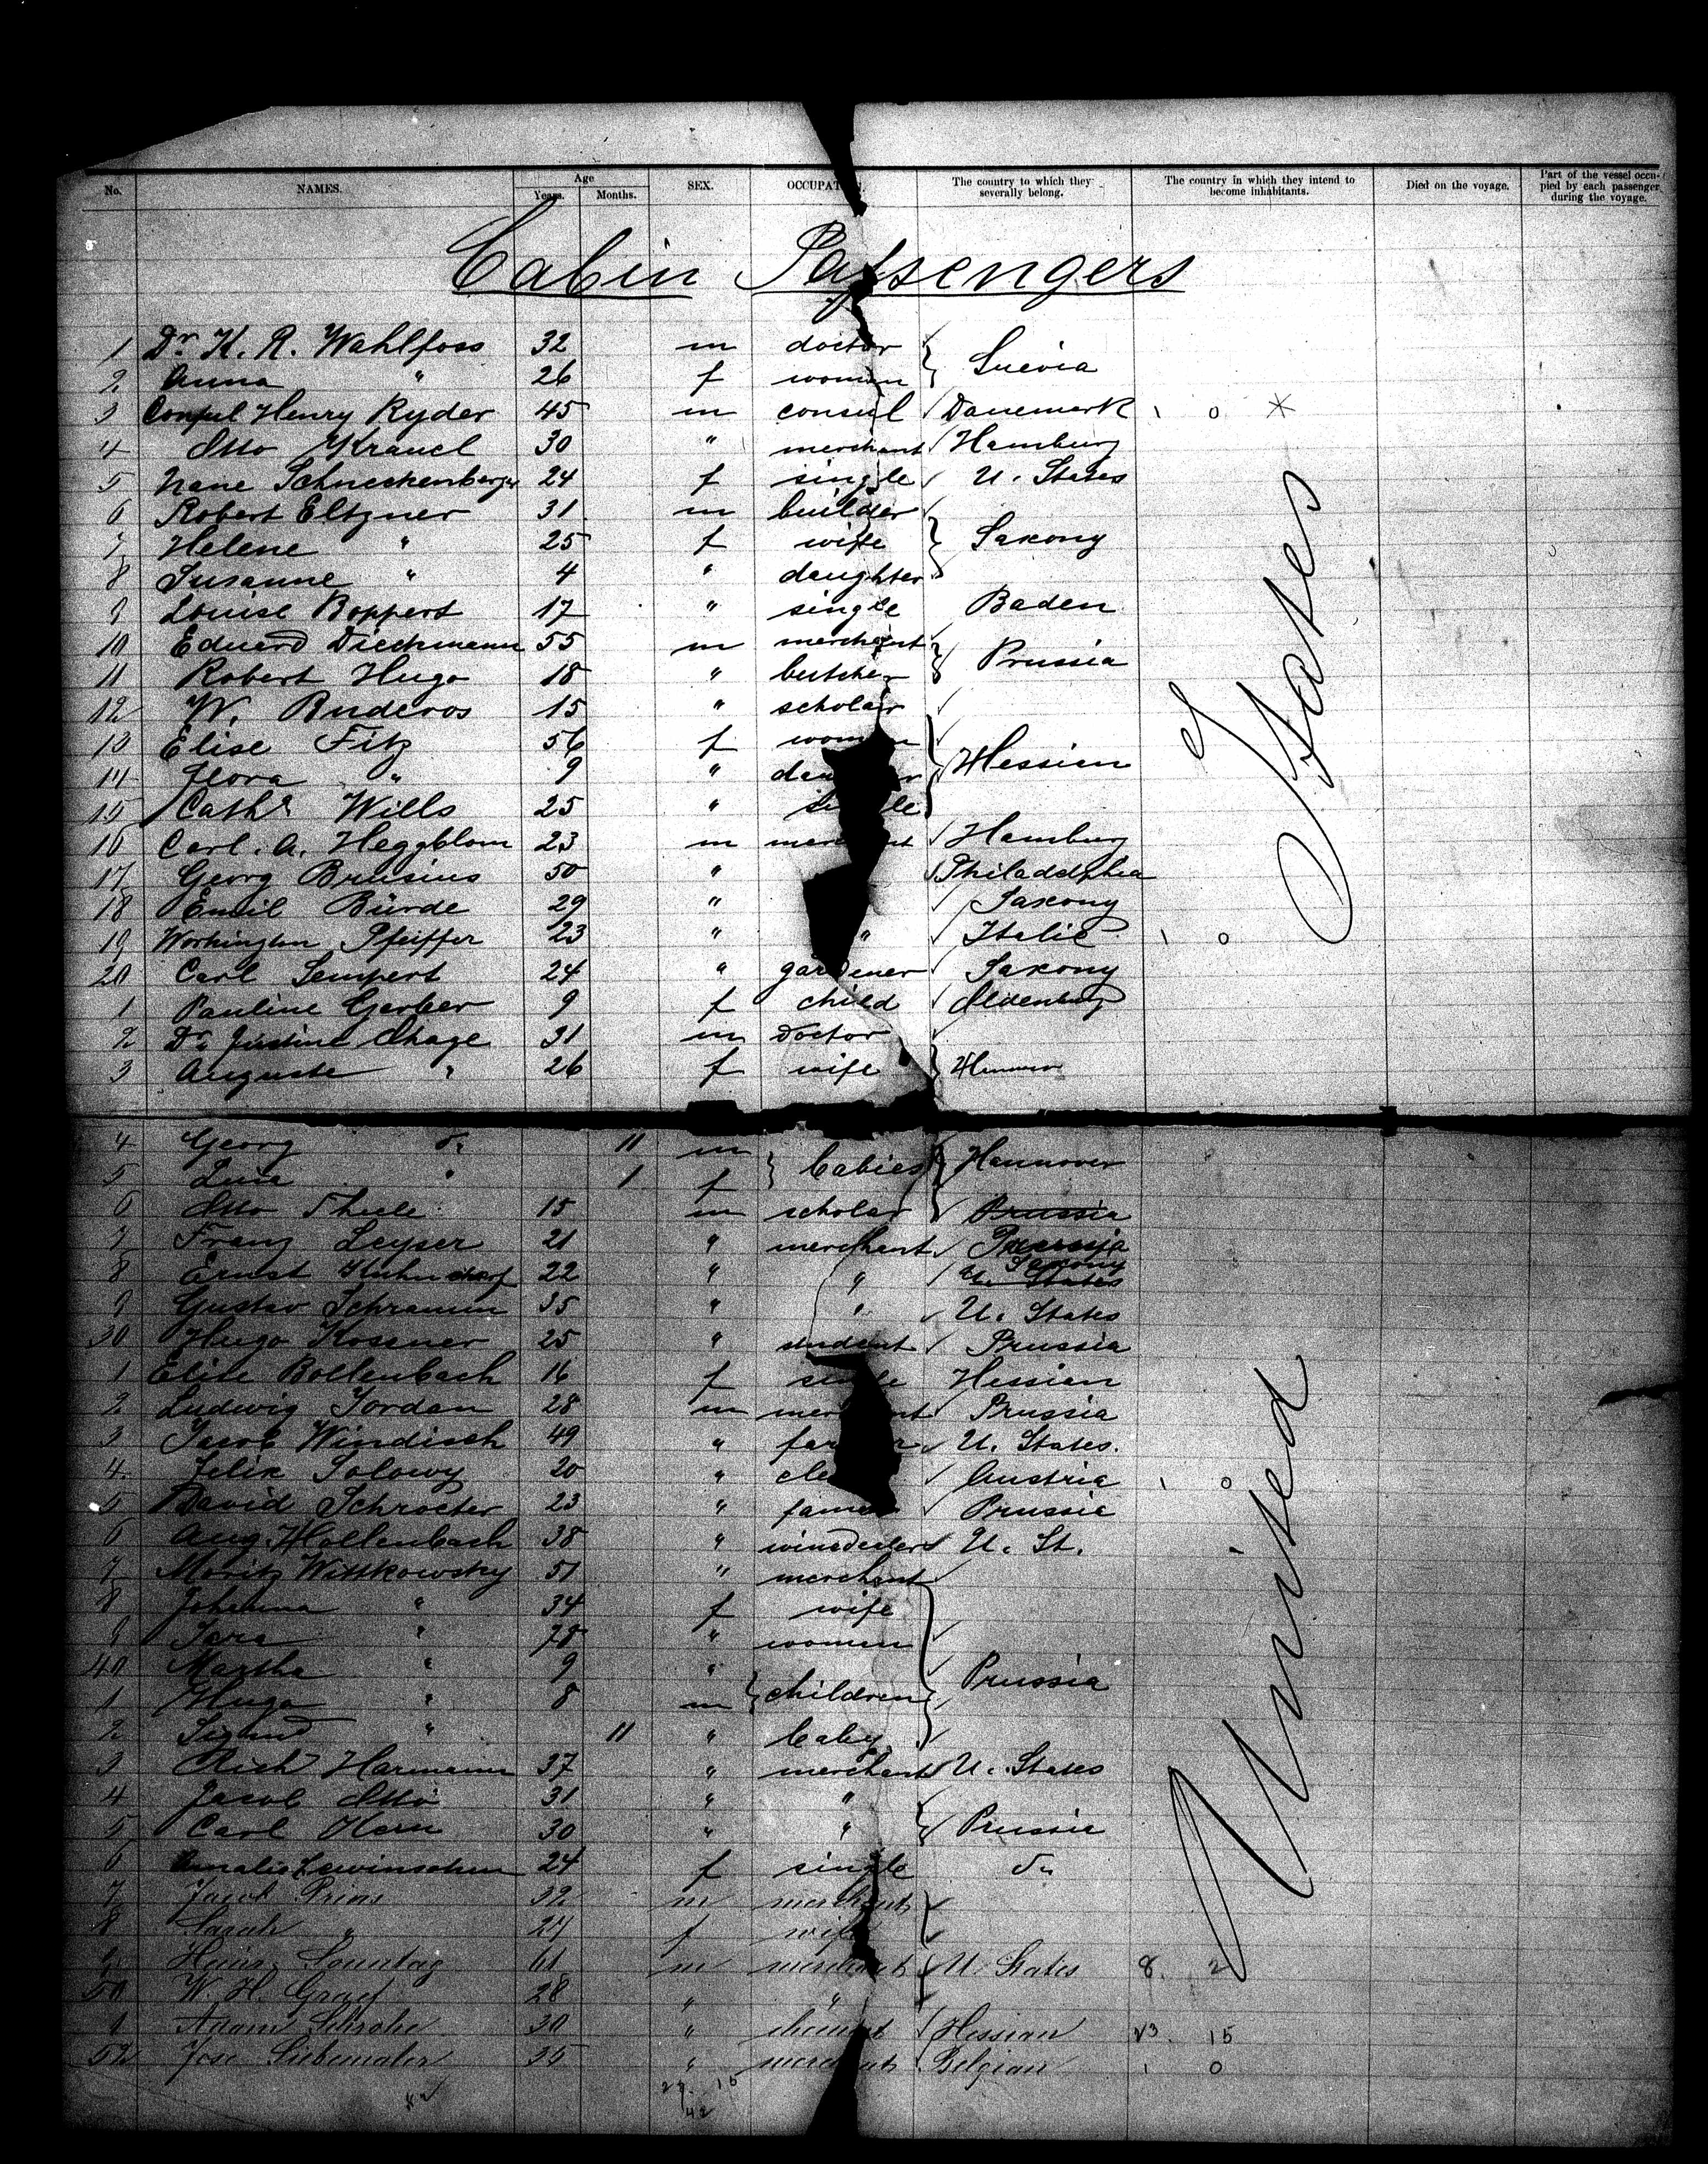 No. NAMES. Age Years. Months. SEX. OCCUPAT The country to which they severally belong. The country in which they intend to become inhabitants. Died on the voyage. Part of the vessel occupied by each passenger during the voyage.
Cabin Passengers
1 Dr. K. R. Wahlfoss 32 m doctor
Suevia
2 Anna " 26 f women
3 Consul Henry Ryder 45 m consul Danemark 1 0
4 Otto Krauel 30 " merchant Hamburg
5 Nane Schneckenberger 24 f single U. States
6 Robert Eltzner 31 m builder
7 Helene " 25 f wife Saxony
8 Susanne " 4 " daughter
9 Louise Boppert 17 " single Baden
10 Eduard Dieckmann 55 m merchant
Prussia
11 Robert Hugo 18 " butcher
12 W. Buderos 15 " scholar
13 Elise Fitz 56 f women
Hessien
14 Flora " 9 "
15 Cath. Wills 25 "
16 Carl. A. Heggblom 23 m Hamburg
17 Georg Brusius 50 " Philadelphia
18 Emil Bürde 29 " Saxony
19 Pfeiffer 23 " " Italie 1 0
20 Carl Lempert 24 " gardener Saxony
1 Pauline Gerber 9 f child Oldenburg
2 Dr. 31 m Doctor
3 Auguste " 26 f wife
4 Georg do 11 m
babies Hannover
5 " 1 f
6 Otto Thiele 15 m scholar Prussia
7 Franz Leyser 21 " merchant
8 Ernst 22 " " Saxony U. States
9 Gustav Schramm 35 " " U. States
30 Hugo Kosener 25 " student Prussia
1 Elise Bollenbach 16 f Hessien
2 Ludwig Jordan 28 m Prussia
3 Jacob Windisch 49 " U. States.
4 Felix Solowy 20 " Austria 1 0
5 David Schroeter 23 " Prussia
6 Aug. Hollenbach 38 " winedealer U. St.
7 Moritz Wittkowsky 51 " merchant
8 Johanna " 34 f wife
9 " 78 " women
40 Martha " 9 "
children Prussia
1 Hugo " 8 m
2 " 11 " baby
3 Rich Harmann 37 " merchant U. States
4 Jacob Otto 31 " "
5 Carl Hern 30 " " Prussia
6 Amalie 24 f single do
7 Jacob Prins 32 m merchant
8 Sarah " 27 f wife
9 Heinr. Sonntag 61 m merchant U. States 8. 2
50 W. H. Graef 28 " "
1 Adam 30 " Hessian 15
52 35 " Belgian 1 0
27. 15
42
United States